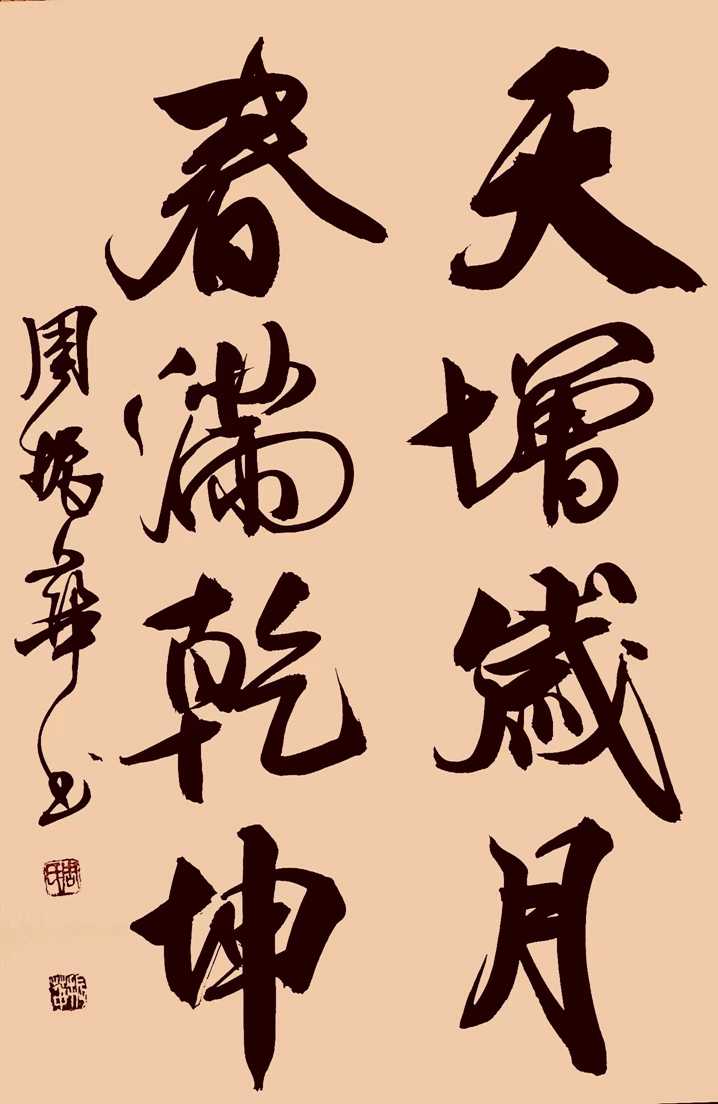 天增歲月
春滿乾坤
周振華书